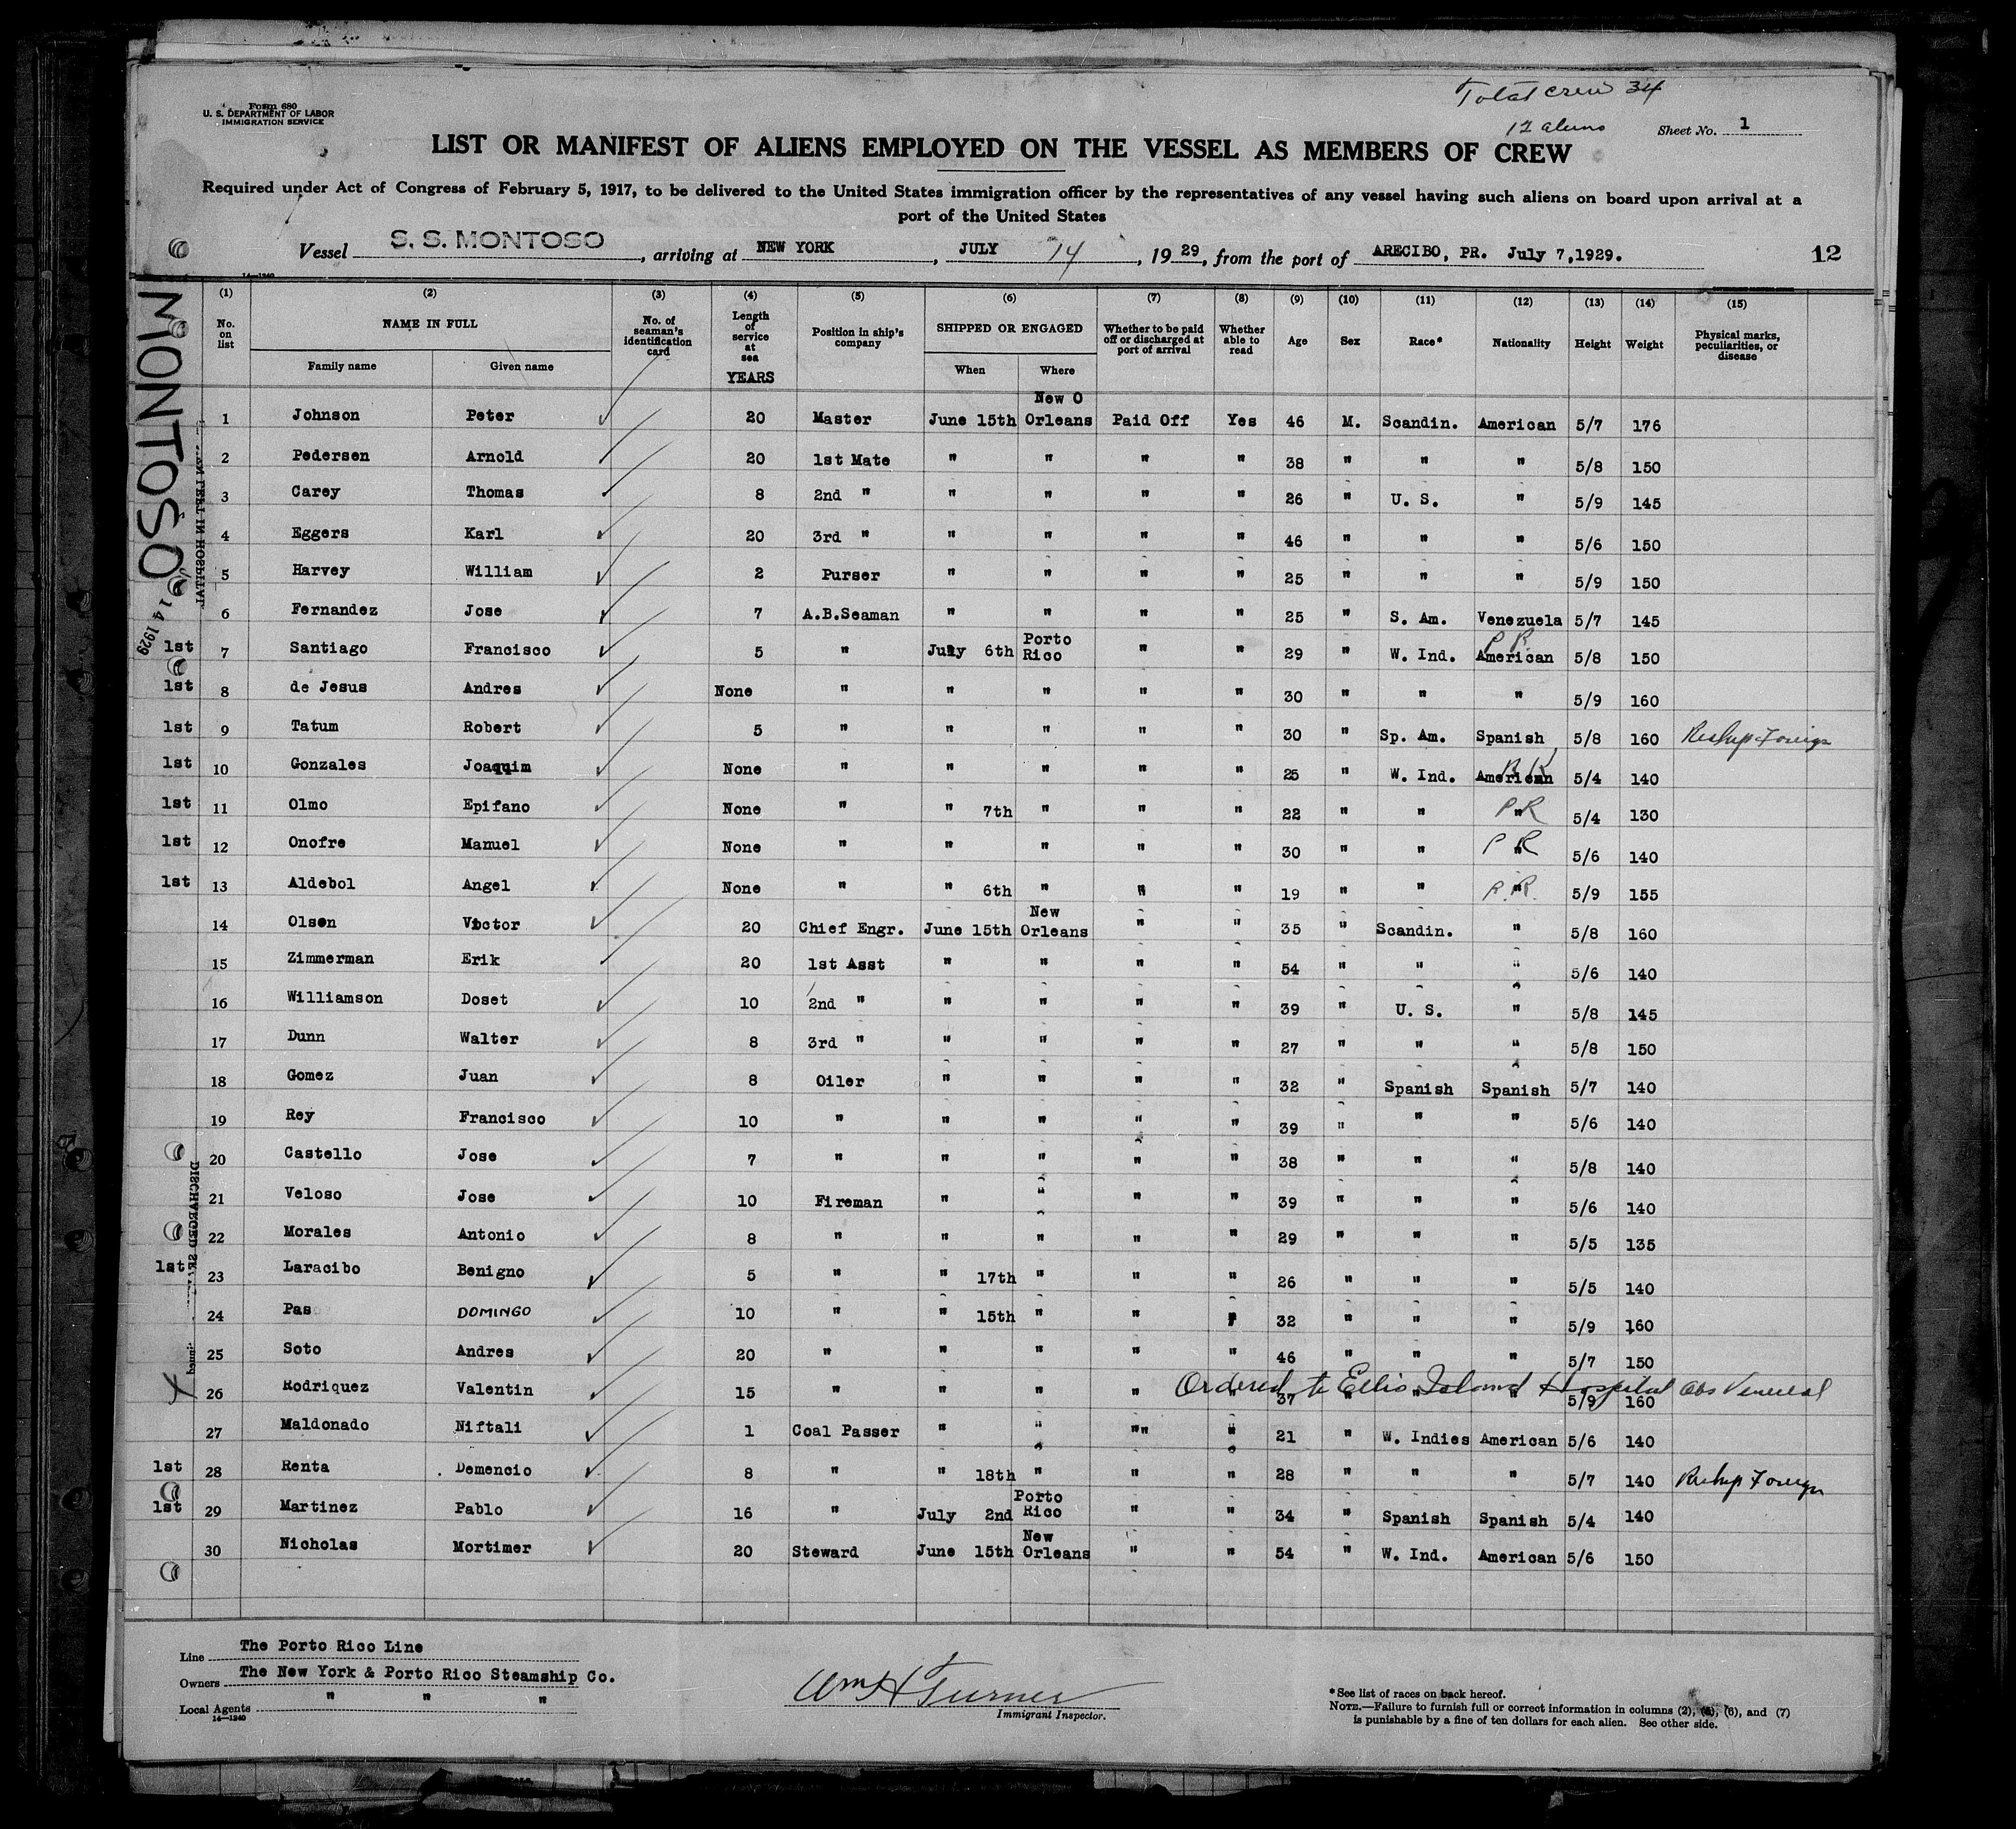 Total crew 34
12 aliens
Form 680
U. S. DEPARTMENT OF LABOR
IMMIGRATION SERVICE
Sheet No. 1
LIST OR MANIFEST OF ALIENS EMPLOYED ON THE VESSEL AS MEMBERS OF CREW
Required under Act of Congress of February 5, 1917, to be delivered to the United States immigration officer by the representatives of any vessel having such aliens on board upon arrival at a
port of the United States
Vessel S. S. MONTOSO, arriving at NEW YORK, JULY 14, 1929, from the port of ARECIBO, PR. July 7,1929.
12
14—1240
MONTOSO
14 1929
(1) (2) (3) (4) (5) (6) (7) (8) (9) (10) (11) (12) (13) (14) (15)
No. on list NAME IN FULL Family name Given name No. of seaman's identification card Length of service at sea YEARS Position in ship's company SHIPPED OR ENGAGED When Where Whether to be paid off or discharged at port of arrival Whether able to read Age Sex Race* Nationality Height Weight Physical marks, peculiarities, or disease
1 Johnson Peter 20 Master June 15th New O Orleans Paid Off Yes 46 M. Scandin. American 5/7 176
2 Pedersen Arnold 20 1st Mate " " " " 38 " " " 5/8 150
3 Carey Thomas 8 2nd " " " " " 26 " U. S. " 5/9 145
4 Eggers Karl 20 3rd " " " " " 46 " " " 5/6 150
5 Harvey William 2 Purser " " " " 25 " " " 5/9 150
6 Fernandez Jose 7 A.B.Seaman " " " " 25 " S. Am. Venezuela 5/7 145
1st 7 Santiago Francisco 5 " July 6th Porto Rico " " 29 " W. Ind. American P R 5/8 150
1st 8 de Jesus Andres None " " " " " 30 " " " 5/9 160
1st 9 Tatum Robert 5 " " " " " 30 " Sp. Am. Spanish 5/8 160 Reship Foreign
1st 10 Gonzales Joaquim None " " " " " 25 " W. Ind. American P R 5/4 140
1st 11 Olmo Epifano None " " 7th " " " 22 " " " P R 5/4 130
1st 12 Onofre Manuel None " " " " " 30 " " " P R 5/6 140
1st 13 Aldebol Angel None " " 6th " " " 19 " " " P.R. 5/9 155
14 Olsen Victor 20 Chief Engr. June 15th New Orleans " " 35 " Scandin. " 5/8 160
15 Zimmerman Erik 20 1st Asst " " " " 54 " " " 5/6 140
16 Williamson Doset 10 2nd " " " " " 39 " U. S. " 5/8 145
17 Dunn Walter 8 3rd " " " " " 27 " " " 5/8 150
18 Gomez Juan 8 Oiler " " " " 32 " Spanish Spanish 5/7 140
19 Rey Francisco 10 " " " " " 39 " " " 5/6 140
20 Castello Jose 7 " " " " " 38 " " " 5/8 140
21 Veloso Jose 10 Fireman " " " " 39 " " " 5/6 140
22 Morales Antonio 8 " " " " " 29 " " " 5/5 135
1st 23 Laracibo Benigno 5 " " 17th " " " 26 " " " 5/5 140
24 Pas DOMINGO 10 " " 15th " " " 32 " " " 5/9 160
25 Soto Andres 20 " " " " " 46 " " " 5/7 150
X 26 Rodriquez Valentin 15 " " " " " 37 " " " 5/9 160 Ordered to Ellis Island Hospital obs Venereal
27 Maldonado Niftali 1 Coal Passer " " "" " 21 " W. Indies American 5/6 140
1st 28 Renta Demencio 8 " " 18th " " " 28 " " " 5/7 140 Reship Foreign
1st 29 Martinez Pablo 16 " July 2nd Porto Rico " " 34 " Spanish Spanish 5/4 140
30 Nicholas Mortimer 20 Steward June 15th New Orleans " " 54 " W. Ind. American 5/6 150
Line The Porto Rico Line
Owners The New York & Porto Rico Steamship Co.
Local Agents " " "
14—1240
Wm H Turner
Immigrant Inspector.
*See list of races on back hereof.
NOTE.—Failure to furnish full or correct information in columns (2), (5), (6), and (7)
is punishable by a fine of ten dollars for each alien. See other side.